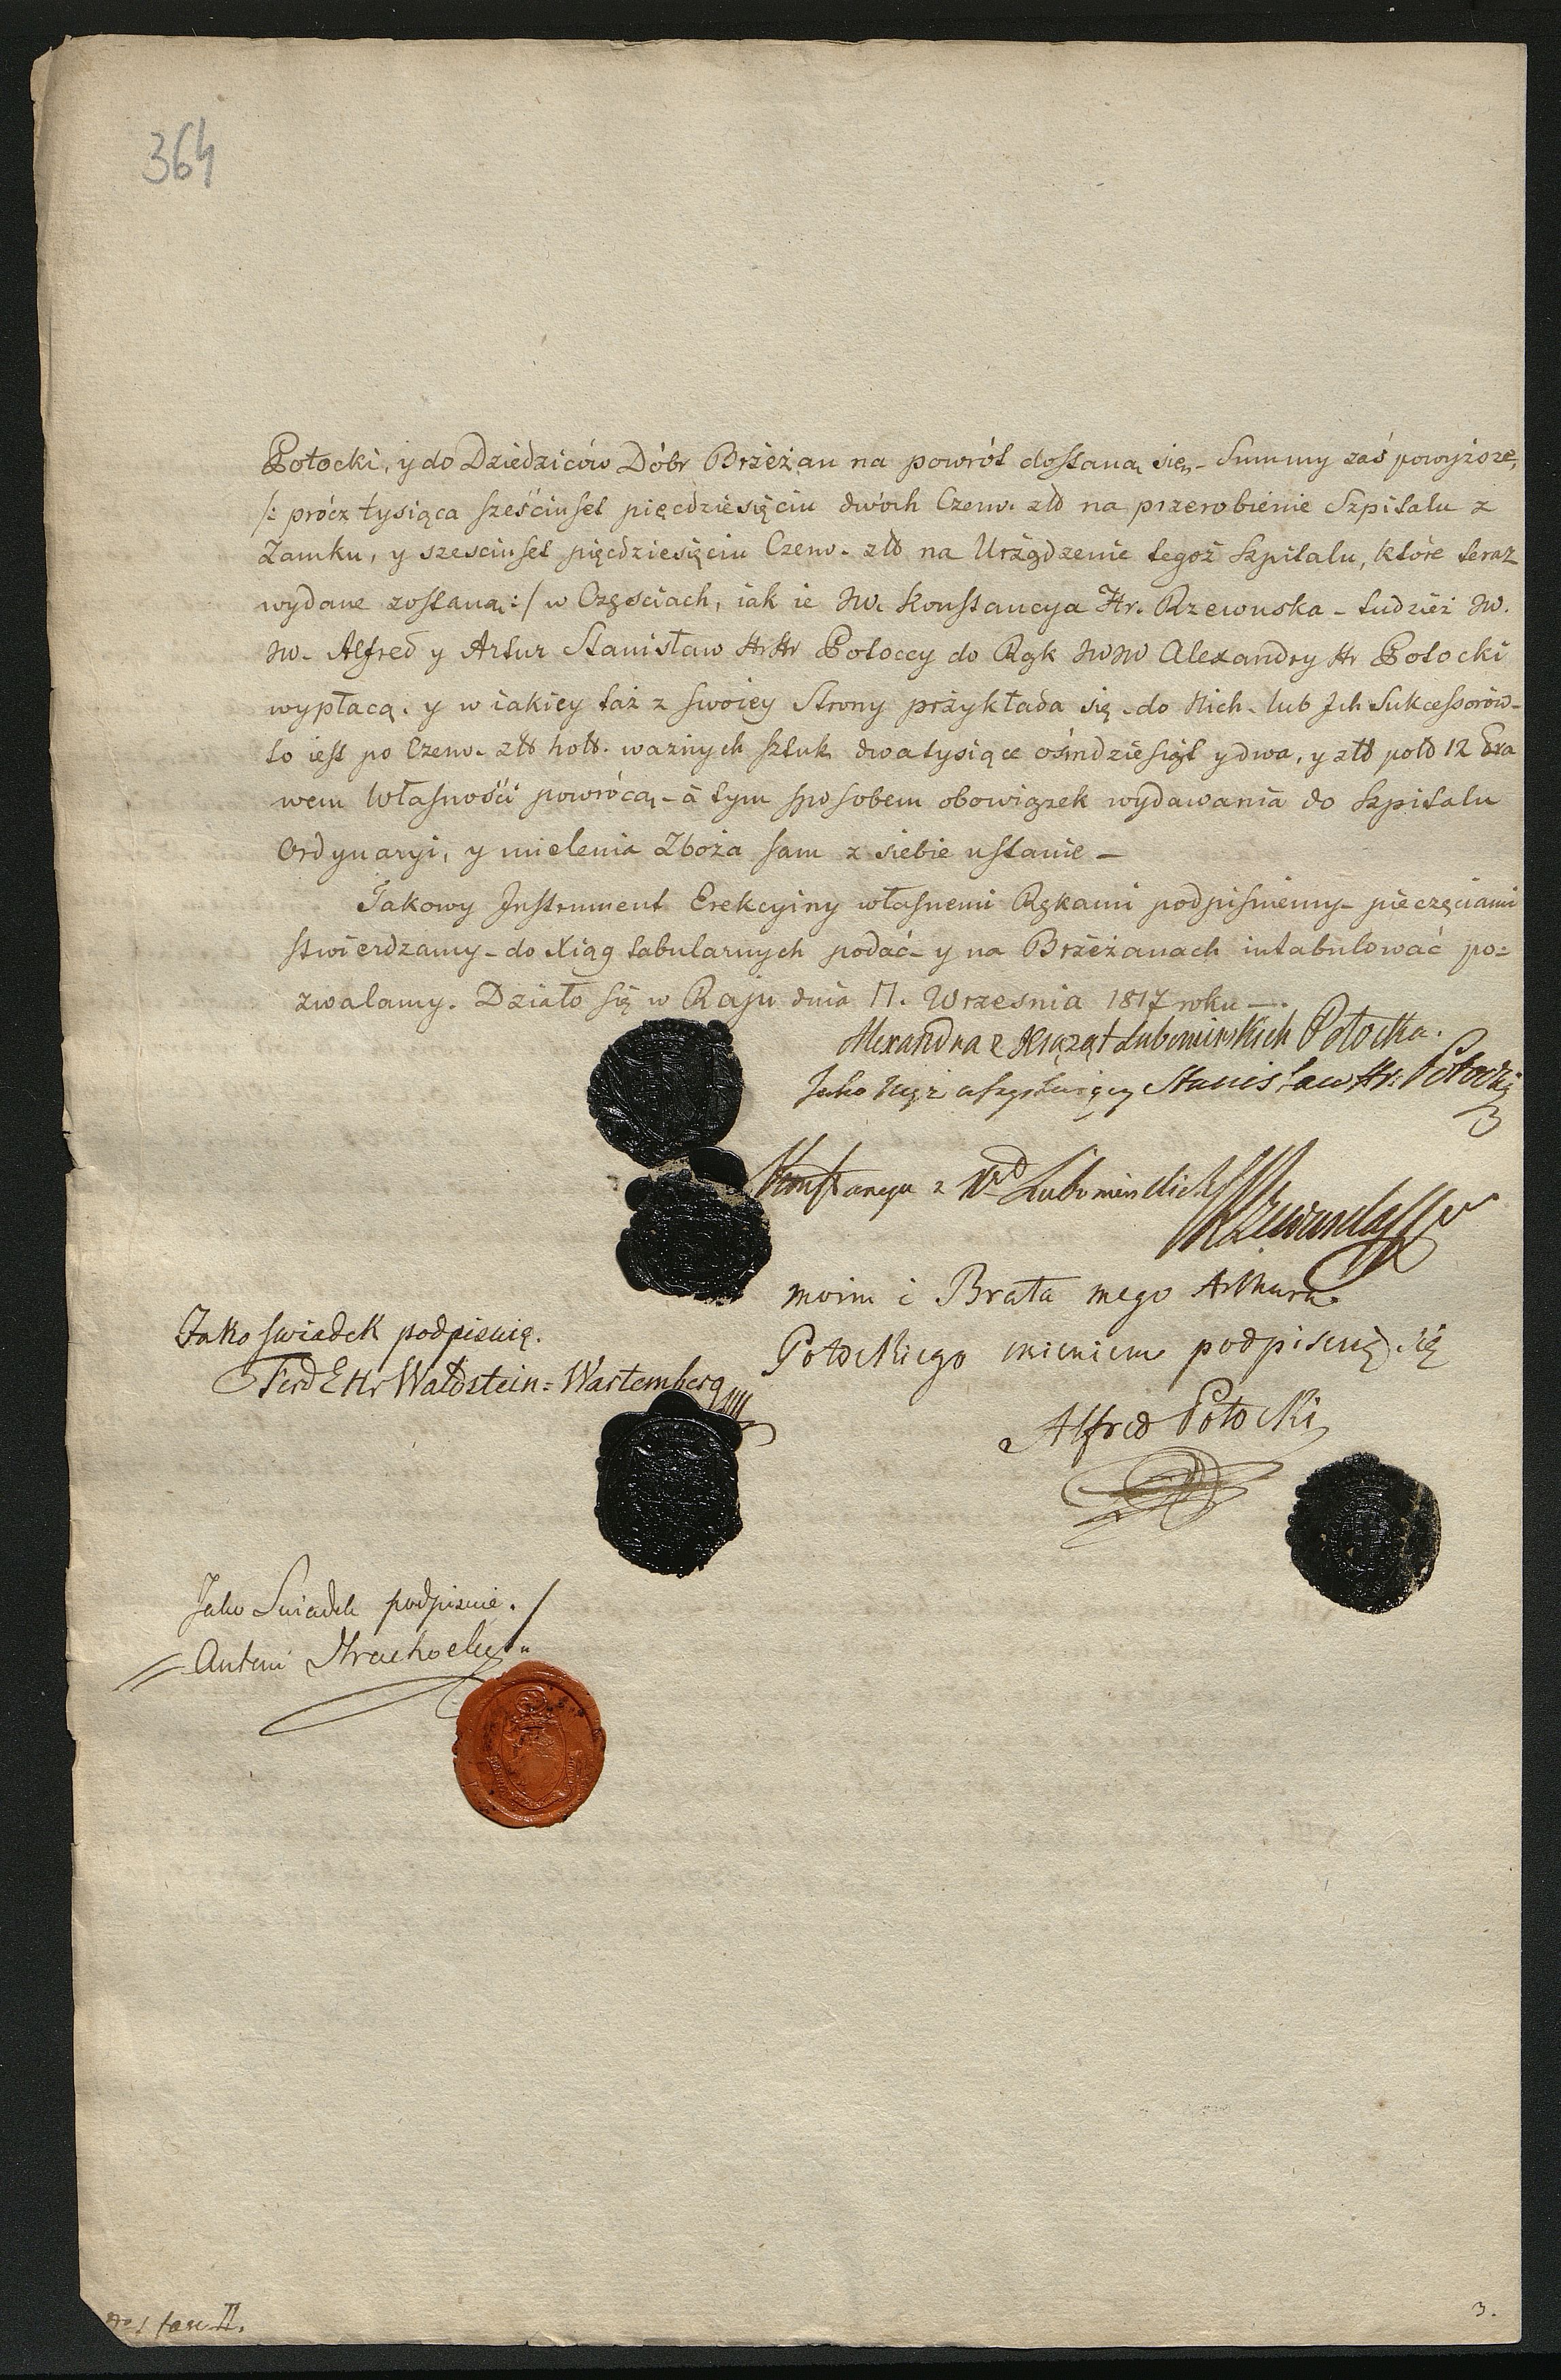 364
Potocki, y do Dziedziców Dóbr Brzeżan na powrót dostaną się,- Summy zaś powyższe,
/: prócz tysiąca sześciuset pięćdziesięciu dwóch Czerw. złł na przerobienie Szpitalu z
Zamku, y szesciuset pięćdziesięciu Czerw. złł na Urządzenie tegoż Szpitalu, które teraz
wydane zostaną :/ w Częściach, iak ie JW. Konstancya Hr. Rzewuska - tudzież JW.
JW. Alfred y Artur Stanisław HrHr Potoccy do Rąk JWJW Alexandry Hr Potocki
wypłacą. y w iakiey taż z swoiey Strony przykłada się - do Nich - lub Ich Sukcessorów -
to iest po Czerw. złł holl. ważnych sztuk dwa tysiące ośmdziesiąt y dwa, y złł pold 12 Pra
wem Własności powrócą - á tym sposobem obowiązek wydawania do Szpitalu
Ordynaryi, y mielenia Zboża sam z siebie ustanie -
Takowy Instrument Erekcyiny własnemi Rękami podpisuiemy - pieczęciami
stwierdzamy - do Xiąg tabularnych podać - y na Brzeżanach intabulować po=
zwalamy. Działo się w Raju dnia 17. Wrzesnia 1817 roku -.
Alexandra z Xiążąt Lubomirskich Potocka.
Jako Mąż assystuiący Stanisław Hr: Potocki
Konstancya z Lubomirskich
Rzewuska
moim i Brata mego Arthura
Potockiego imieniem podpisuię się
Jako swiadek podpisuię.
Ferd E Hr Waldstein=Wartemberg
Alfred Potocki
Jako Swiadek podpisuię.
Antoni
fasc II.
3.